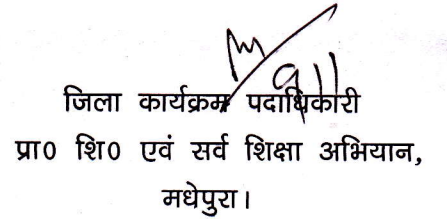 जिला कार्यक्रम पदाधिकारी
प्रा0 शि0 एवं सर्व शिक्षा अभियान,
मधेपुरा।